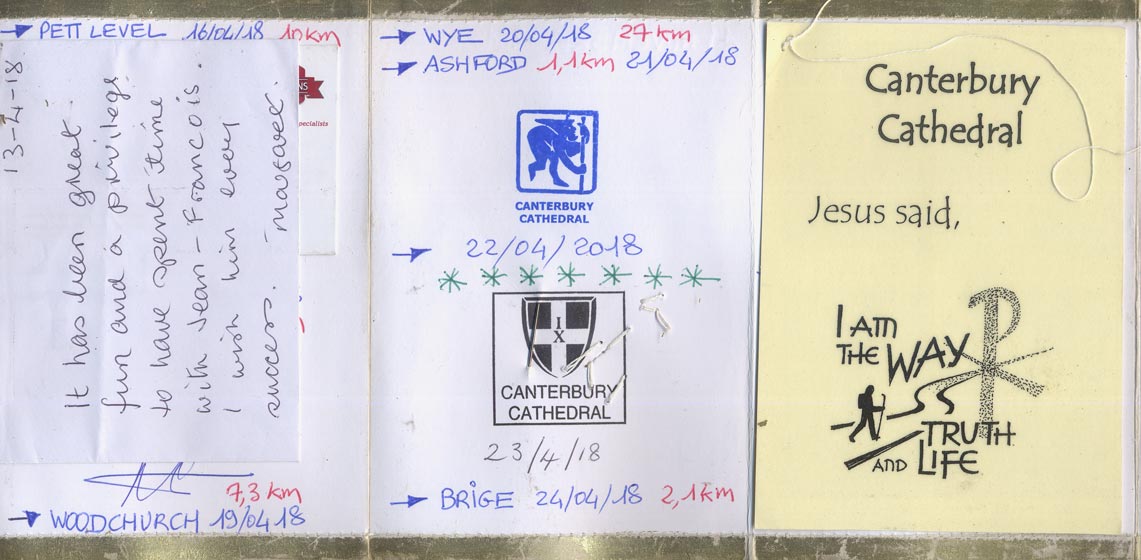 → PETT LEVEL 16/04/18 10 km
13-4-18
It has been great
fun and a privilege
to have spent time
with Jean-Francois.
I wish him every
success. -Margaret.
NS
specialists
7,3 km
→ WOODCHURCH 19/04 18
→ WYE 20/04/18 27 km
→ ASHFORD 1,1 km 21/04/18
CANTERBURY
CATHEDRAL
→ 22/04/2018
* * * * * * *
I
X
CANTERBURY
CATHEDRAL
23/4/18
→ BRIGE 24/04/18 2,1 km
Canterbury
Cathedral
Jesus said,
I AM
THE WAY
TRUTH
AND LIFE